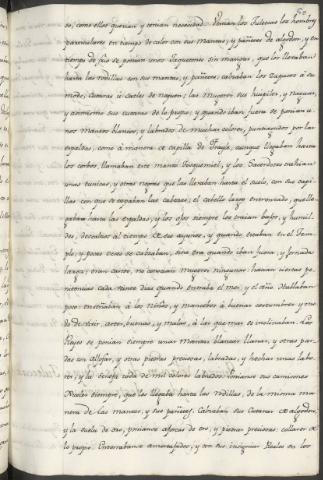 se, como ellos querian y tenian necesidad. Vestian los Yuletecas los hombres
particulares en tiempo de calor con sus mantas, y pañetes de algodon, y en
tiempo de frio se ponian unos Jaquetones sin mangas, que los llevaban
hasta las rodillas con sus mantas, y pañetes; calzaban los zapatos á su
modo, cutaras ó cacles de nequen; las mugeres sus huipiles, y naguas,
y asimismo sus cutaras de lo propio; y quando iban fuera se ponian u-
nos Mantos blancos, y labrados de muchas colores, puntiagudos por las
espaldas, como á manera de capilla de Frayle, aunque llegaban hasta
los corbos, llamaban este manto Toxquemitl, y los Sacerdotes vestian
unas tunicas, y otras negras que las llevaban hasta el suelo, con sus capi-
llas con que se tapaban las cabezas; el cabello largo entrenzado, que lle-
gaban hasta las espaldas, y los ojos siempre los traian bajos, y humil-
des, descalzos al tiempo de sus ayunos, y quando estaban en el Tem-
plo, y pocas veces se calzaban, sino era quando iban fuera, y Jornada
larga; eran castos, no conocian mugeres ningunas hacian ciertas pe-
nitencias cada veinte dias quando entraba el mes, y el año
enseñaban á los niños, y mancebos á buenas costumbres y mo-
do de vivir, artes, buenas, y malas, á las que mas se inclinaban. Los
Reyes se ponian siempre unas Mantas blancas llanas, y otras par-
das con Aljofar, y otras piedras preciosas, labradas, y hechas unas labo-
res, y la cenefa toda de mil colores labrados. Ponianse sus camisones
Reales siempre, que les llegaba hasta las rodillas, de la misma ma-
nera de las mantas, y sus pañetes. Calzaban sus Cutaras de algodon,
y la suela de oro, ponianse ajorcas de oro, y piedras preciosas collares de
lo propio. Entrenabanse amenazados, y con sus insignias Reales en los